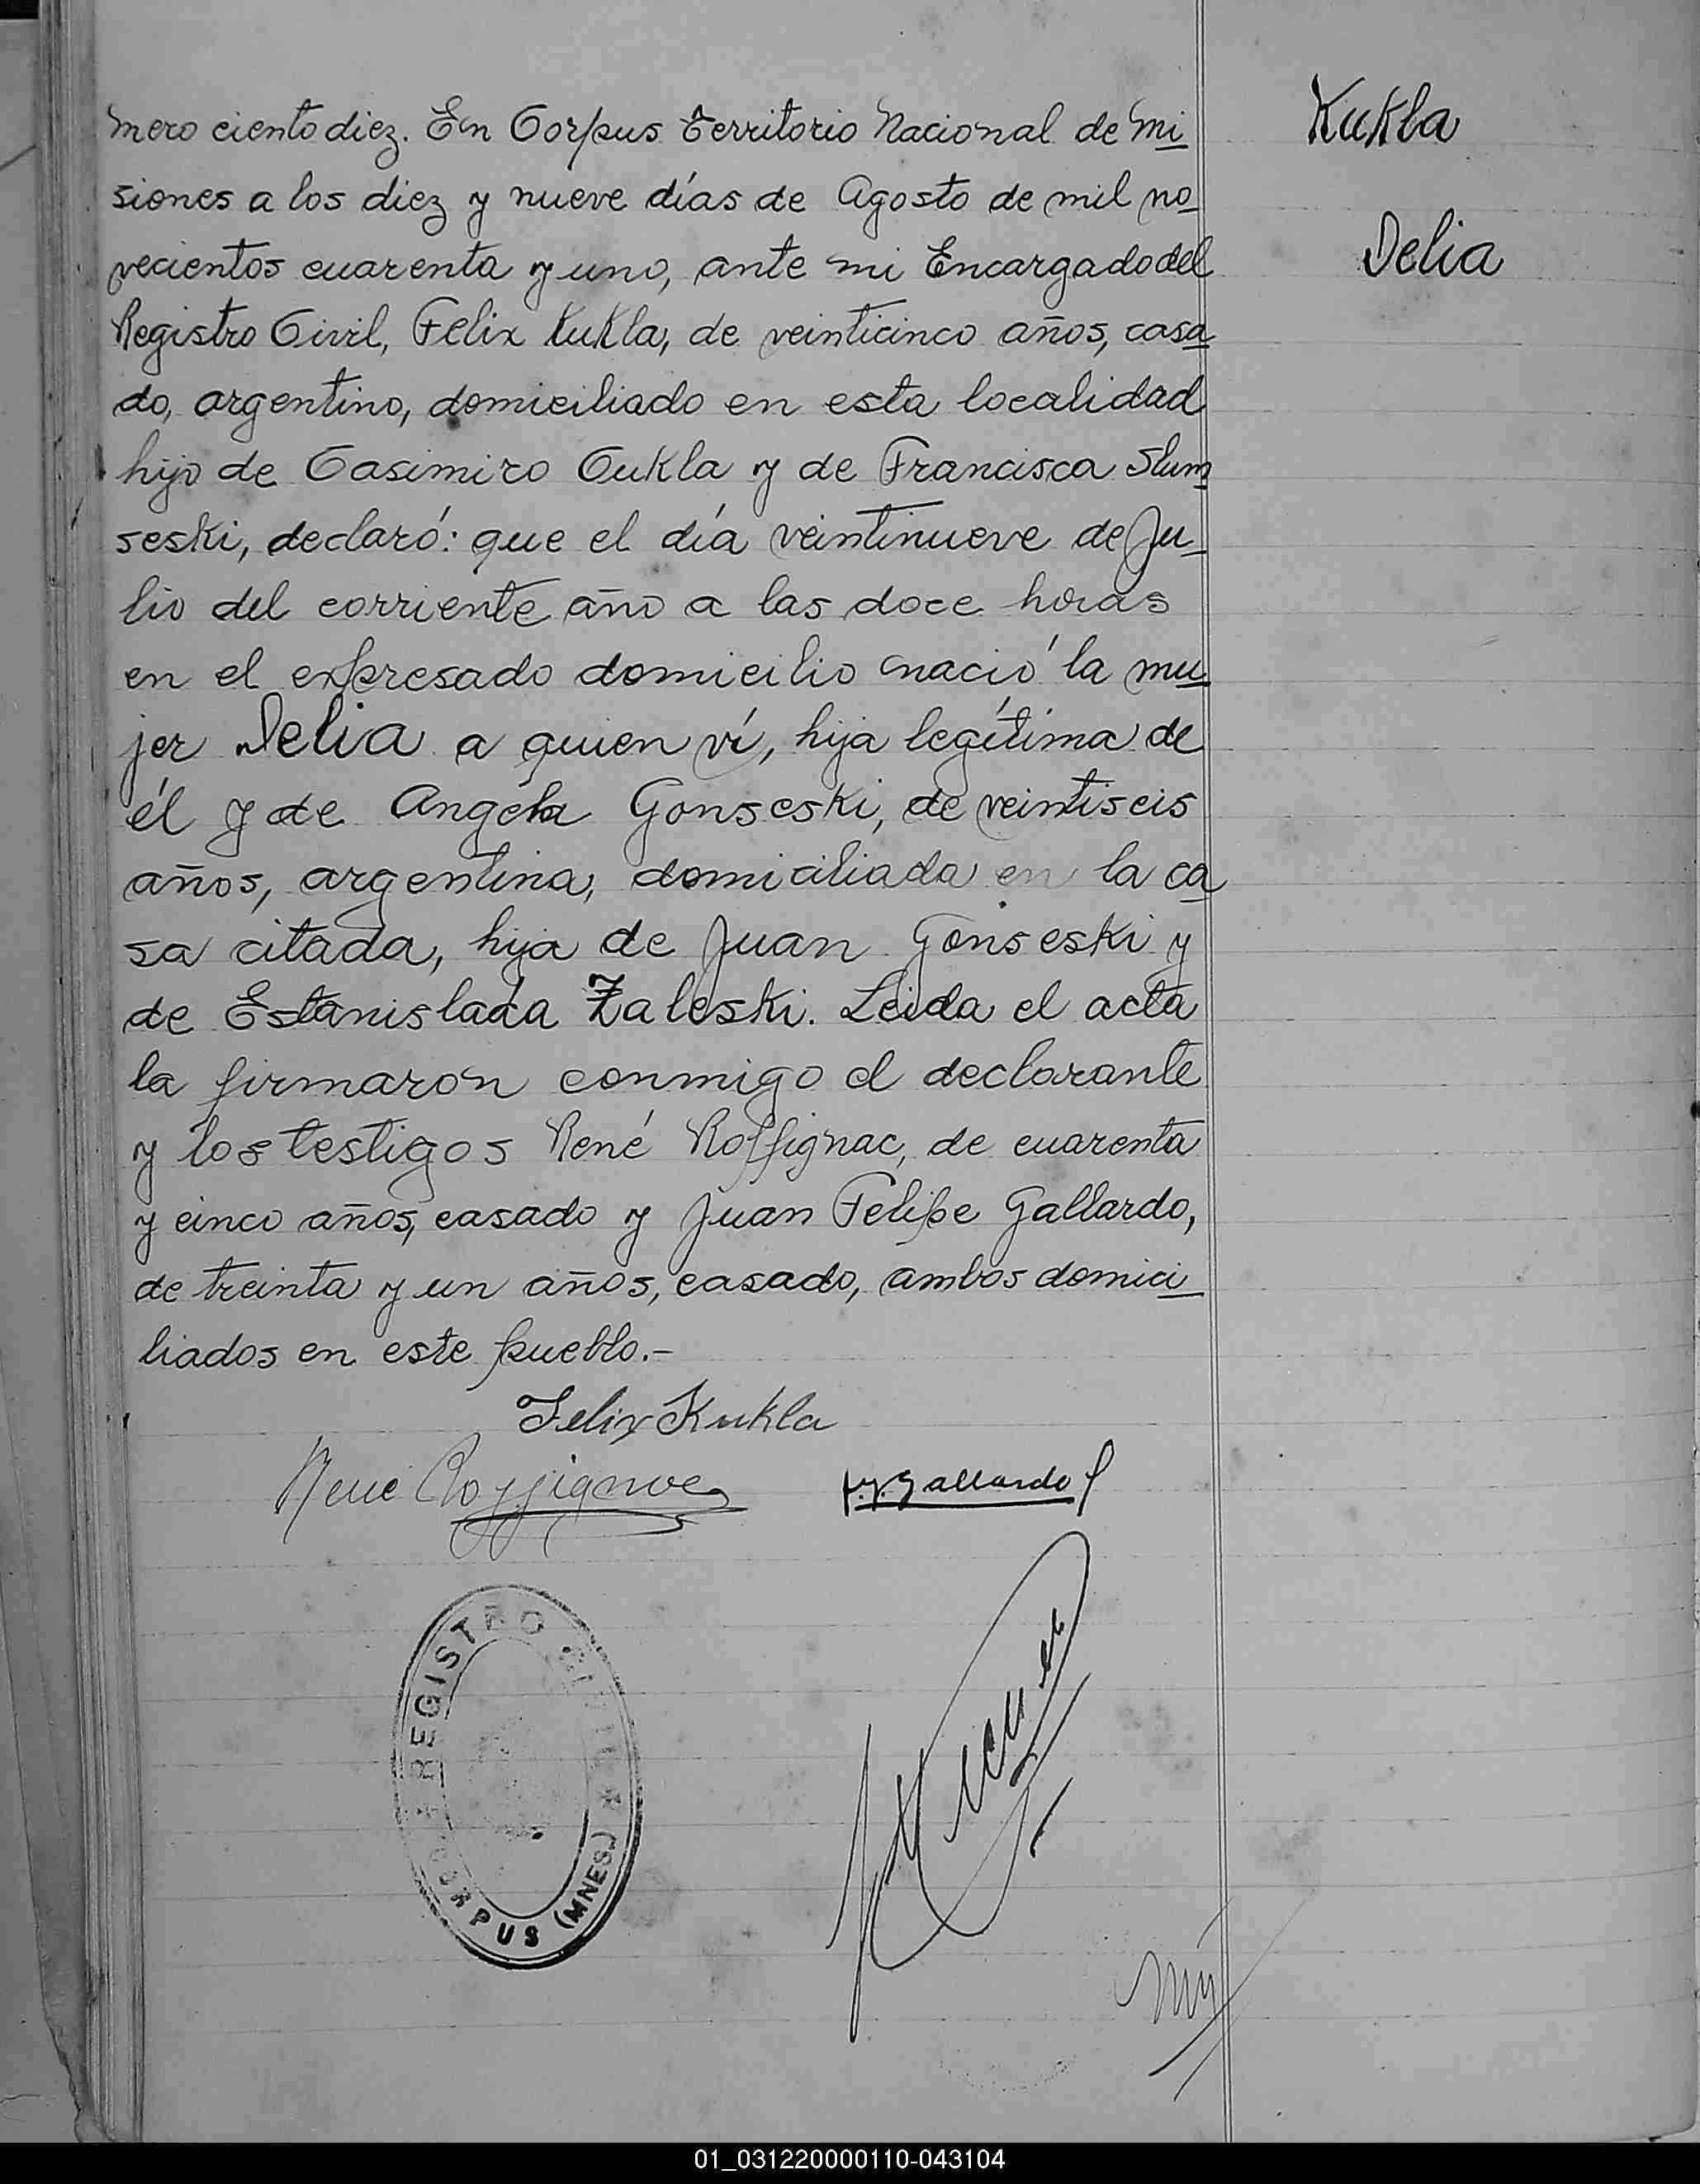 Kukla
Delia
mero ciento diez. En Corpus Territorio Nacional de Mi
siones a los diez y nueve días de Agosto de mil no
vecientos cuarenta y uno, ante mi Encargado del
Registro Civil, Felix Kukla, de veinticinco años, casa
do, argentino, domiciliado en esta localidad
hijo de Casimiro Cukla y de Francisca Slum
seski, declaró: que el día veintinueve de Ju-
lio del corriente año a las doce horas
en el expresado domicilio nació la mu
jer Delia a quien ví, hija legítima de
él y de Angela Gonseski, de veintiseis
años, argentina, domiciliada en la ca
sa citada, hija de Juan Gonseski y
de Estanislada Zaleski. Leida el acta
la firmaron conmigo el declarante
y los testigos René Roffignac, de cuarenta
y cinco años, casado y Juan Felipe Gallardo,
de treinta y un años, casado, ambos domici
liados en este pueblo.-
Felix Kukla
René Roffignac
J.F. Gallardo
REGISTRO CIVIL
CORPUS (MNES.)
01_031220000110-043104